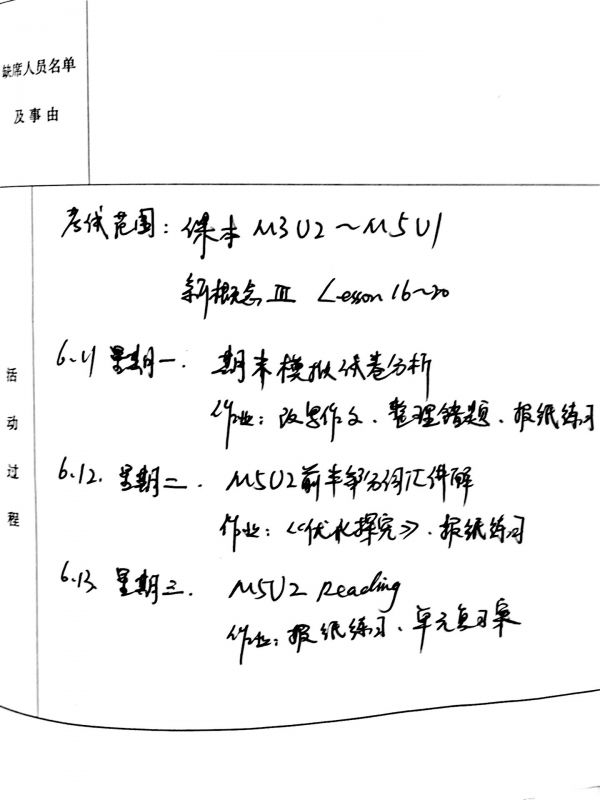 缺席人员名单
及事由
考试范围：课本 M3U2～M5U1
新概念Ⅲ Lesson 16～20
活动过程
6.11 星期一. 期末模拟试卷分析
作业：改写作文、整理错题、报纸练习
6.12. 星期二. M5U2前半部分词汇讲解
作业：《优化探究》、报纸练习
6.13. 星期三. M5U2 Reading
作业：报纸练习、单元复习案